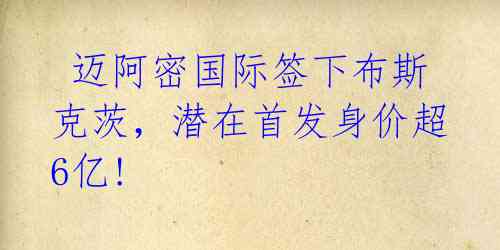 迈阿密国际签下布斯
克茨，潜在首发身价超
6亿!